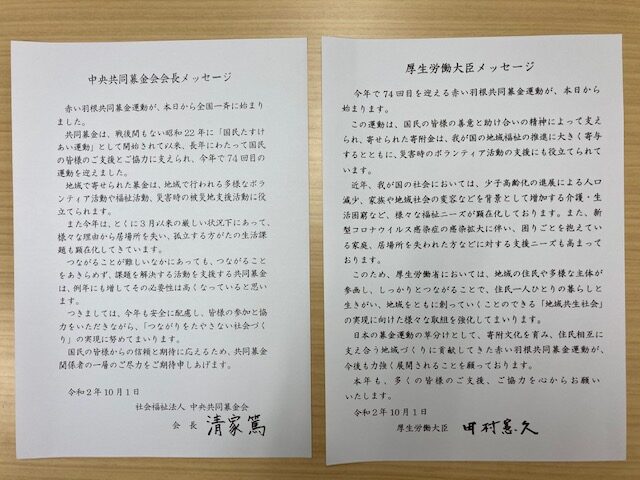 中央共同募金会会長メッセージ
赤い羽根共同募金運動が、本日から全国一斉に始まり
ました。
共同募金は、戦後間もない昭和22年に「国民たすけ
あい運動」として開始されて以来、長年にわたって国民
の皆様のご支援とご協力に支えられ、今年で74回目の
運動を迎えました。
地域で寄せられた募金は、地域で行われる多様なボラン
ティア活動や福祉活動、災害時の被災地支援活動に役
立てられます。
また今年は、とくに3月以来の厳しい状況下にあって、
様々な理由から居場所を失い、孤立する方がたの生活課
題も顕在化してきています。
つながることが難しいなかにあっても、つながること
をあきらめず、課題を解決する活動を支援する共同募金
は、例年にも増してその必要性は高くなっていると思い
ます。
つきましては、今年も安全に配慮し、皆様の参加と協
力をいただきながら、「つながりをたやさない社会づく
り」の実現に努めてまいります。
国民の皆様からの信頼と期待に応えるため、共同募金
関係者の一層のご尽力をご期待申しあげます。
令和2年10月1日
社会福祉法人 中央共同募金会
会 長 清家篤
厚生労働大臣メッセージ
今年で74回目を迎える赤い羽根共同募金運動が、本日から
始まります。
この運動は、国民の皆様の善意と助け合いの精神によって支え
られ、寄せられた寄附金は、我が国の地域福祉の推進に大きく寄与
するとともに、災害時のボランティア活動の支援にも役立てられて
います。
近年、我が国の社会においては、少子高齢化の進展による人口
減少、家族や地域社会の変容などを背景として増加する介護・生
活困窮など、様々な福祉ニーズが顕在化しております。また、新
型コロナウイルス感染症の感染拡大に伴い、困りごとを抱えてい
る家庭、居場所を失われた方などに対する支援ニーズも高まって
おります。
このため、厚生労働省においては、地域の住民や多様な主体が
参画し、しっかりとつながることで、住民一人ひとりの暮らしと
生きがい、地域をともに創っていくことのできる「地域共生社会」
の実現に向けた様々な取組を強化してまいります。
日本の募金運動の草分けとして、寄附文化を育み、住民相互に
支え合う地域づくりに貢献してきた赤い羽根共同募金運動が、
今後も力強く展開されることを願っております。
本年も、多くの皆様のご支援、ご協力を心からお願い
いたします。
令和2年10月1日
厚生労働大臣 田村憲久